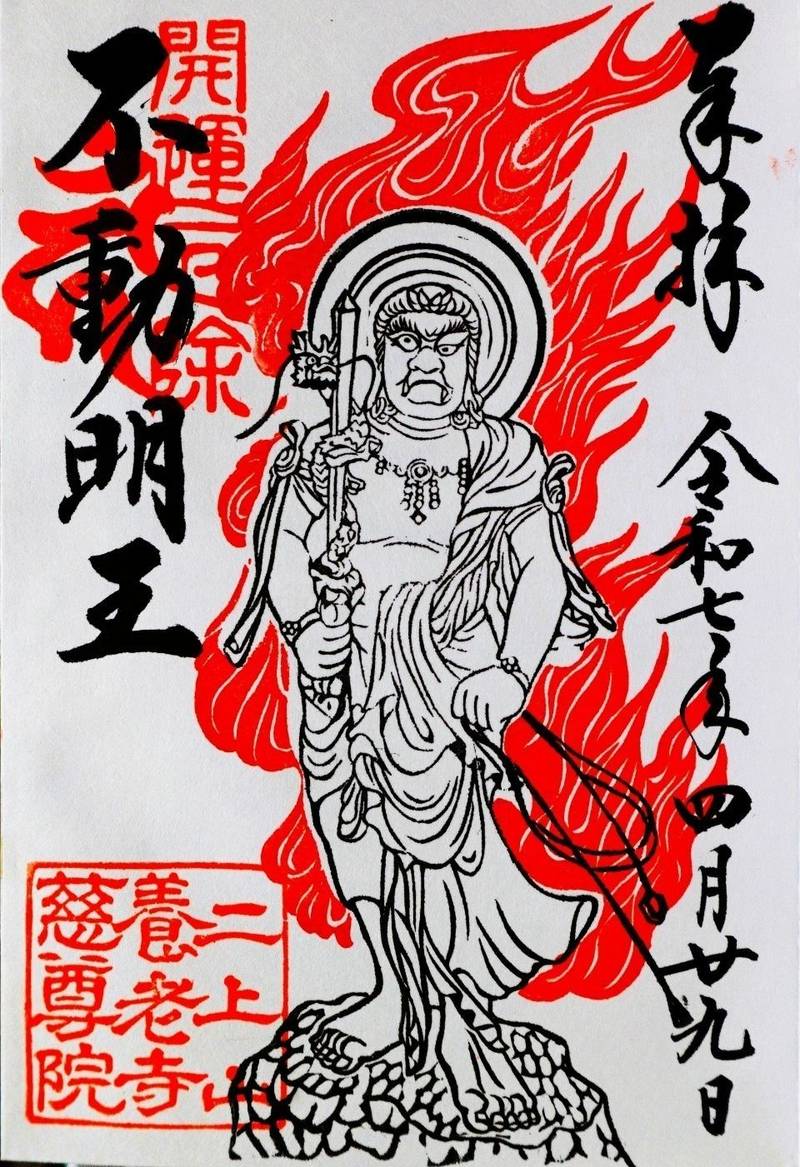 奉拝
令和七年
四月廿九日
開運厄除
不動明王
二上山
養老寺
慈尊院